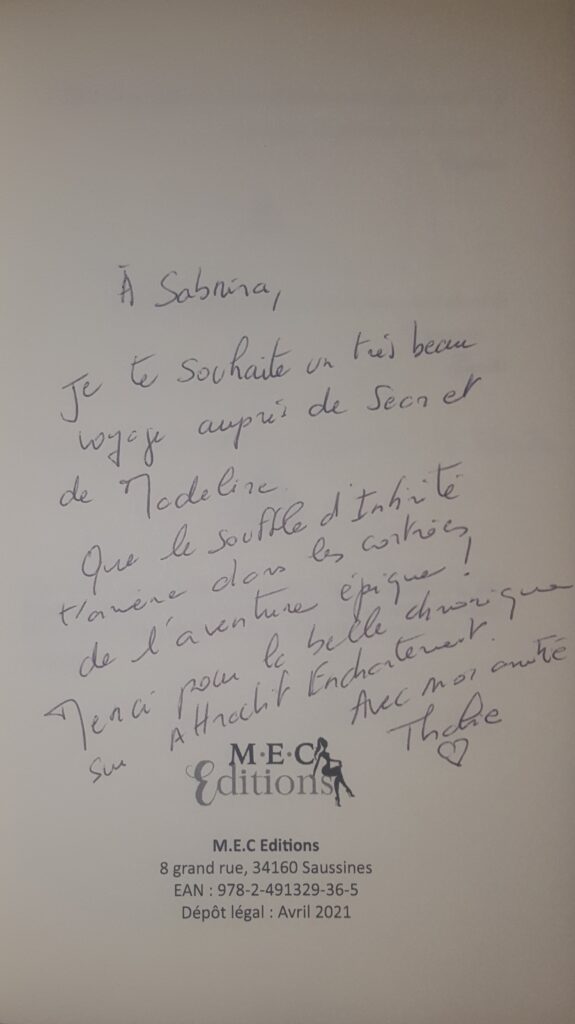 À Sabrina,
Je te souhaite un très beau
voyage auprès de Secret
de Madeline
Que le souffle d'Infinité
t'amène dans les contrées
de l'aventure épique !
Merci pour la belle chronique
sur Attractif Enchantement.
Avec mon amitié
Thalie
M·E·C
Editions
M.E.C Editions
8 grand rue, 34160 Saussines
EAN : 978-2-491329-36-5
Dépôt légal : Avril 2021